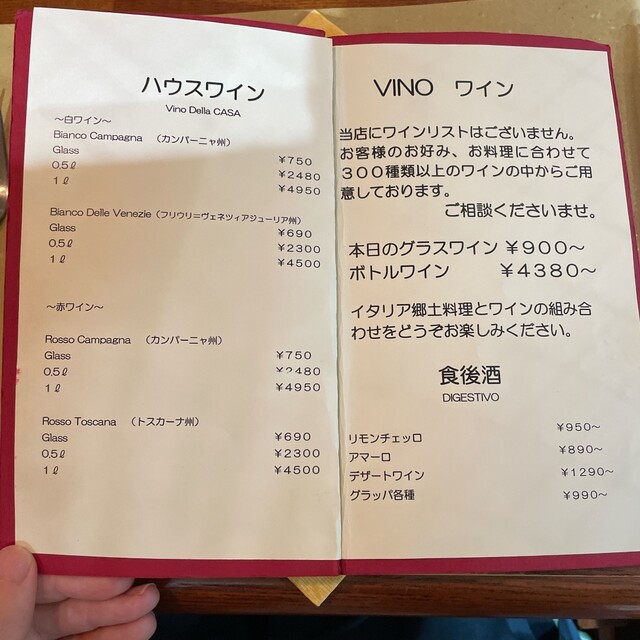 ハウスワイン
Vino Della CASA
～白ワイン～
Bianco Campagna （カンパーニャ州）
Glass ¥750
0.5ℓ ¥2480
1ℓ ¥4950
Bianco Delle Venezie（フリウリ＝ヴェネツィアジューリア州）
Glass ¥690
0.5ℓ ¥2300
1ℓ ¥4500
～赤ワイン～
Rosso Campagna （カンパーニャ州）
Glass ¥750
0.5ℓ ¥2480
1ℓ ¥4950
Rosso Toscana （トスカーナ州）
Glass ¥690
0.5ℓ ¥2300
1ℓ ¥4500
VINO ワイン
当店にワインリストはございません。
お客様のお好み、お料理に合わせて
３００種類以上のワインの中からご用
意しております。
ご相談くださいませ。
本日のグラスワイン ¥９００～
ボトルワイン ¥４３８０～
イタリア郷土料理とワインの組み合
わせをどうぞお楽しみください。
食後酒
DIGESTIVO
リモンチェッロ ¥950～
アマーロ ¥890～
デザートワイン ¥1290～
グラッパ各種 ¥990～